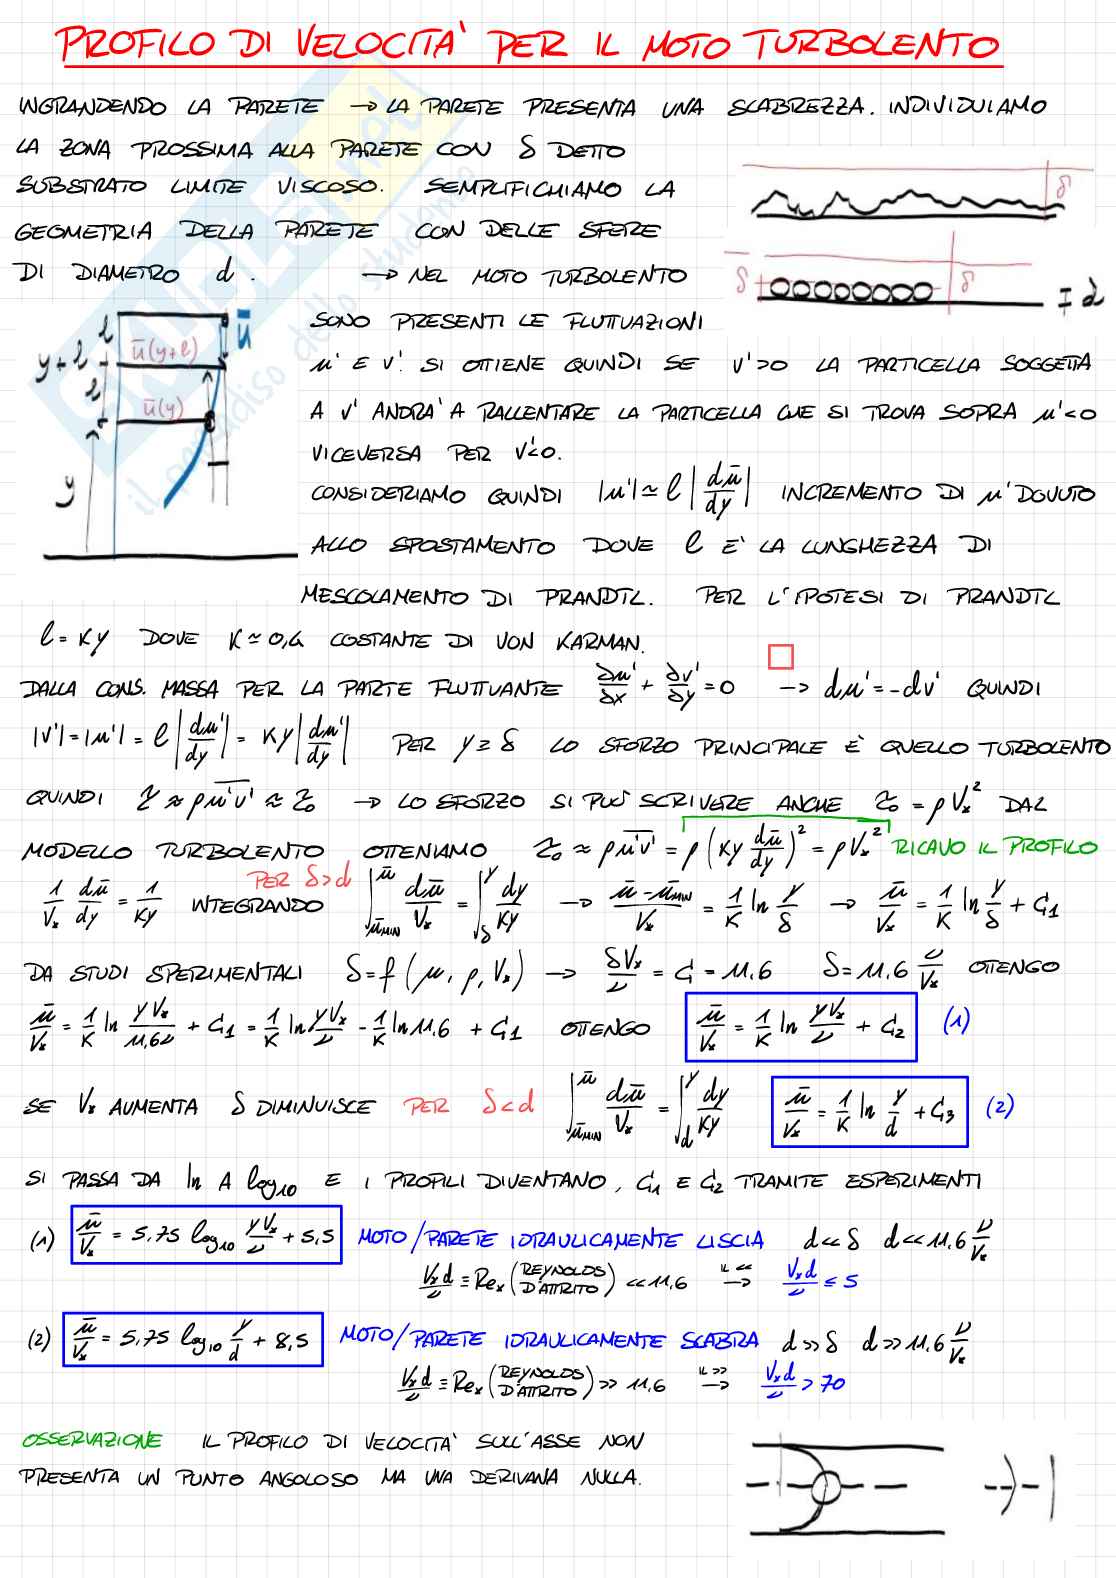 PROFILO DI VELOCITA' PER IL MOTO TURBOLENTO
INGRANDENDO LA PARETE → LA PARETE PRESENTA UNA SCABREZZA. INDIVIDUIAMO
LA ZONA PROSSIMA ALLA PARETE CON δ DETTO
SUBSTRATO LIMITE VISCOSO. SEMPLIFICHIAMO LA
GEOMETRIA DELLA PARETE CON DELLE SFERE
DI DIAMETRO d. → NEL MOTO TURBOLENTO
δ
δ δ d
SONO PRESENTI LE FLUTTUAZIONI
u' E v'. SI OTTIENE QUINDI SE v'>0 LA PARTICELLA SOGGETTA
A v' ANDRA' A RALLENTARE LA PARTICELLA CHE SI TROVA SOPRA u'<0
VICEVERSA PER v'<0.
l ū
y+l ū(y+l)
l ū(y)
y
CONSIDERIAMO QUINDI |u'| ≃ l |dū/dy| INCREMENTO DI u' DOVUTO
ALLO SPOSTAMENTO DOVE l E' LA LUNGHEZZA DI
MESCOLAMENTO DI PRANDTL. PER L'IPOTESI DI PRANDTL
l = Ky DOVE K ≃ 0,4 COSTANTE DI VON KARMAN.
DALLA CONS. MASSA PER LA PARTE FLUTTUANTE ∂u'/∂x + ∂v'/∂y = 0 → du' = -dv' QUINDI
|v'| = |u'| = l |du'/dy| = Ky |du'/dy| PER y ≥ δ LO SFORZO PRINCIPALE È QUELLO TURBOLENTO
QUINDI τ ≈ ρ u'v' ≈ τ₀ → LO SFORZO SI PUÒ SCRIVERE ANCHE τ₀ = ρ V*² DAL
MODELLO TURBOLENTO OTTENIAMO τ₀ ≈ ρ u'v' = ρ (Ky dū/dy)² = ρ V*² RICAVO IL PROFILO
PER δ>d
1/V* dū/dy = 1/Ky INTEGRANDO ∫_ūMIN^ū dū/V* = ∫_δ^y dy/Ky → (ū - ūMIN)/V* = 1/K ln y/δ → ū/V* = 1/K ln y/δ + C₁
DA STUDI SPERIMENTALI δ = f(μ, ρ, V*) → δV*/ν = C = 11.6 δ = 11.6 ν/V* OTTENGO
ū/V* = 1/K ln yV*/11,6ν + C₁ = 1/K ln yV*/ν - 1/K ln 11.6 + C₁ OTTENGO ū/V* = 1/K ln yV*/ν + C₂ (1)
SE V* AUMENTA δ DIMINUISCE PER δ<d ∫_ūMIN^ū dū/V* = ∫_d^y dy/Ky ū/V* = 1/K ln y/d + C₃ (2)
SI PASSA DA ln A log₁₀ E I PROFILI DIVENTANO, C₁ E C₂ TRAMITE ESPERIMENTI
(1) ū/V* = 5,75 log₁₀ yV*/ν + 5,5 MOTO/PARETE IDRAULICAMENTE LISCIA d << δ d << 11.6 ν/V*
V*d/ν ≡ Re* (REYNOLDS D'ATTRITO) << 11.6 IL << → V*d/ν ≤ 5
(2) ū/V* = 5,75 log₁₀ y/d + 8,5 MOTO/PARETE IDRAULICAMENTE SCABRA d >> δ d >> 11.6 ν/V*
V*d/ν ≡ Re* (REYNOLDS D'ATTRITO) >> 11.6 IL >> → V*d/ν > 70
OSSERVAZIONE IL PROFILO DI VELOCITA' SULL'ASSE NON
PRESENTA UN PUNTO ANGOLOSO MA UNA DERIVANA NULLA.
il paradiso dello studente